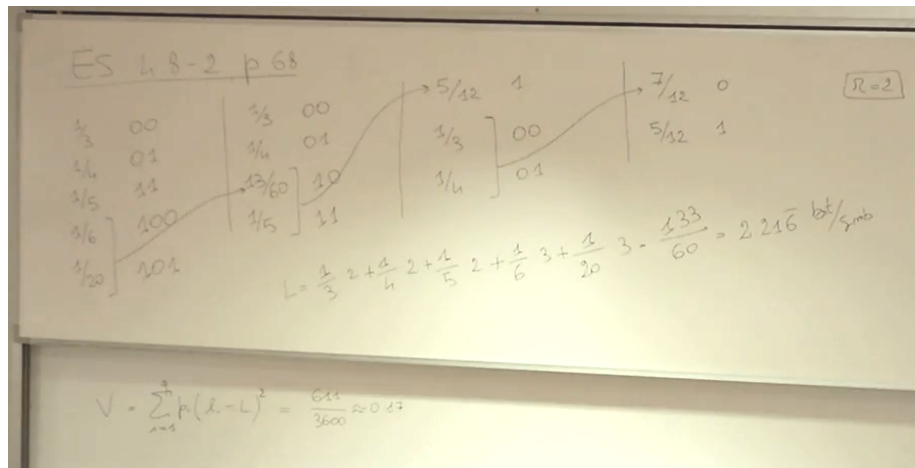 ES 4 8-2 p 68
r=2
1/3 00
1/4 01
1/5 11
1/6 100
1/20 101
1/3 00
1/4 01
13/60 10
1/5 11
5/12 1
1/3 00
1/4 01
7/12 0
5/12 1
L = 1/3 2 + 1/4 2 + 1/5 2 + 1/6 3 + 1/20 3 = 133/60 = 2 216̅ bit/simb
V = Σ_{i=1}^{q} p_i (l_i - L)^2 = 611/3600 ≈ 0 17